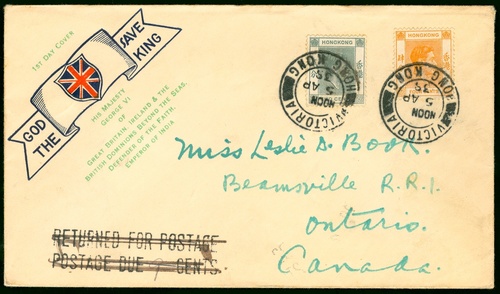 1ST DAY COVER
GOD SAVE
THE KING
HIS MAJESTY
GEORGE VI
OF
GREAT BRITAIN, IRELAND & THE
BRITISH DOMINIONS BEYOND THE SEAS,
DEFENDER OF THE FAITH,
EMPEROR OF INDIA
HONGKONG
HONGKONG
VICTORIA
NOON
5 AP
38
HONG KONG
VICTORIA
NOON
5 AP
38
HONG KONG
Miss Leslie D. Book.
Beamsville R.R.1.
Ontario.
Canada.
RETURNED FOR POSTAGE
POSTAGE DUE CENTS.